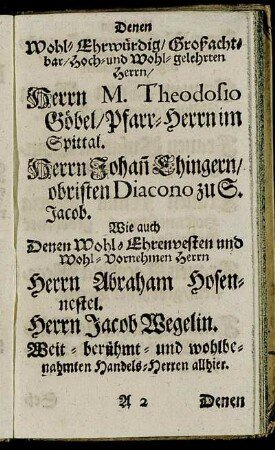 Denen
Wohl-Ehrwürdig/Großacht-
bar/Hoch-und Wohl-gelehrten
Herrn/
Herrn M. Theodosio
Göbel/Pfarr-Herrn im
Spittal.
Herrn Johañ Ehingern/
obristen Diacono zu S.
Jacob.
Wie auch
Denen Wohl-Ehrenvesten und
Wohl-Vornehmen Herrn
Herrn Abraham Hosen-
nestel.
Herrn Jacob Wegelin.
Weit-berühmt-und wohlbe-
nahmten Handels-Herren allhier.
A 2 Denen